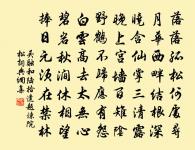 落落孤松何處尋
月華西畔結根深
曉含仙掌三清露
晚上宮牆百雉陰
野鶴不歸應有怨
白雲高去太無心
碧岩秋澗休相望
捧日元須在禁林
吳融和陸拾遺題諫院
松詞典網集